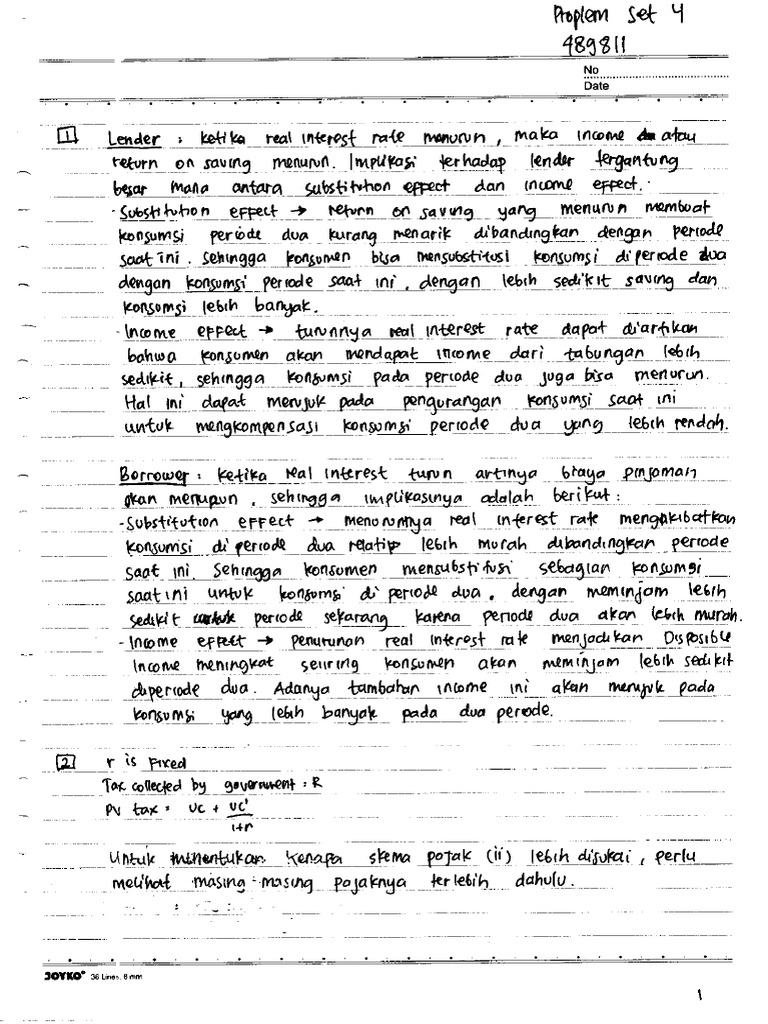 Proplem Set 4
489811
No
Date
1 Lender : ketika real interest rate menurun, maka income atau
return on saving menurun. Implikasi terhadap lender tergantung
besar mana antara substitution effect dan income effect.
- Substitution effect → return on saving yang menurun membuat
konsumsi periode dua kurang menarik dibandingkan dengan periode
saat ini. Sehingga konsumen bisa mensubstitusi konsumsi di periode dua
dengan konsumsi periode saat ini, dengan lebih sedikit saving dan
konsumsi lebih banyak.
- Income effect → turunnya real interest rate dapat diartikan
bahwa konsumen akan mendapat income dari tabungan lebih
sedikit, sehingga konsumsi pada periode dua juga bisa menurun.
Hal ini dapat merujuk pada pengurangan konsumsi saat ini
untuk mengkompensasi konsumsi periode dua yang lebih rendah.
Borrower : ketika real interest turun artinya biaya pinjaman
akan menurun, sehingga implikasinya adalah berikut :
- Substitution effect → menurunnya real interest rate mengakibatkan
konsumsi di periode dua relatif lebih murah dibandingkan periode
saat ini. Sehingga konsumen mensubstitusi sebagian konsumsi
saat ini untuk konsumsi di periode dua, dengan meminjam lebih
sedikit periode sekarang karena periode dua akan lebih murah.
- Income effect → penurunan real interest rate menjadikan Disposible
Income meningkat seiring konsumen akan meminjam lebih sedikit
diperiode dua. Adanya tambahan income ini akan merujuk pada
konsumsi yang lebih banyak pada dua periode.
2 r is Fixed
Tax collected by government : R
PV tax = UC + UC'
1+r
Untuk menentukan kenapa skema pajak (ii) lebih disukai, perlu
melihat masing-masing pajaknya terlebih dahulu.
JOYKO® 36 Lines, 8 mm
1